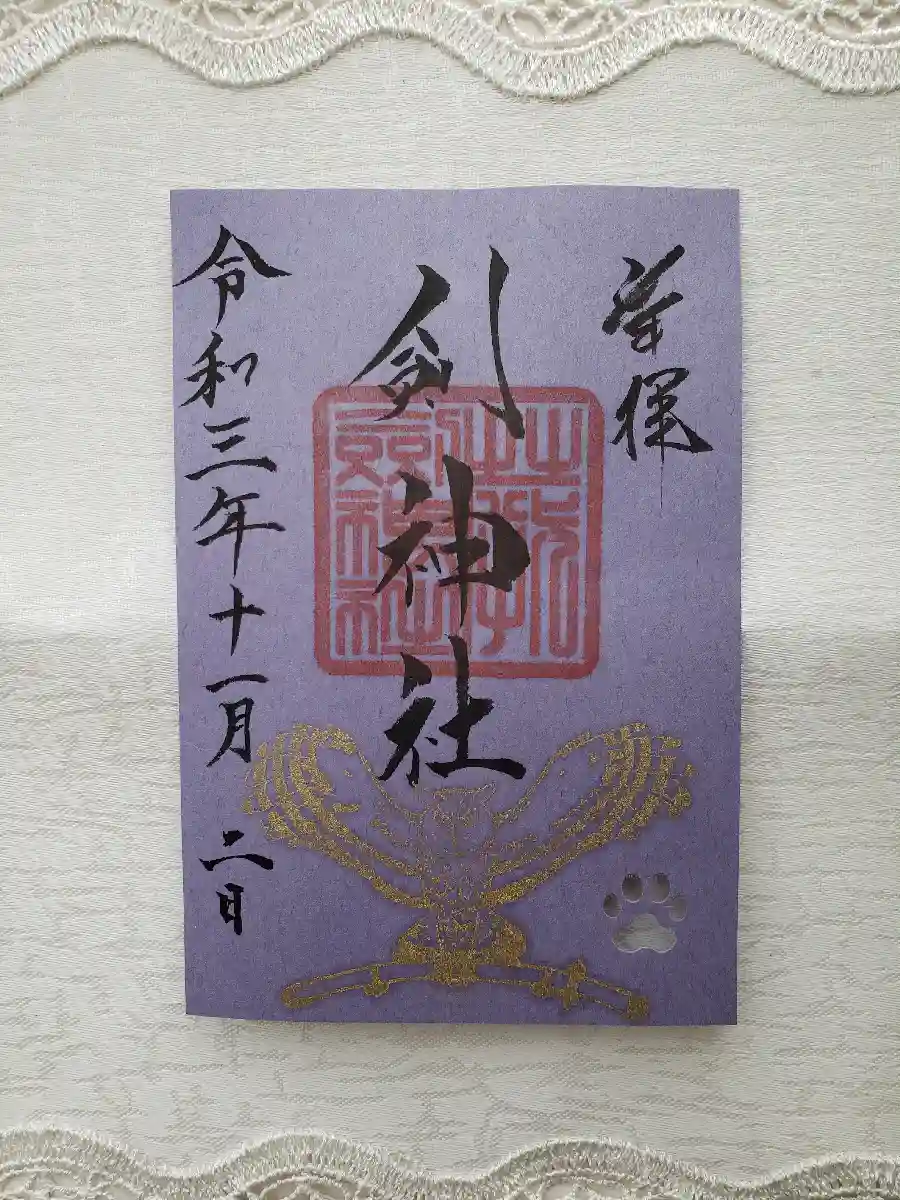 奉拝
剣神社
令和三年十一月二日